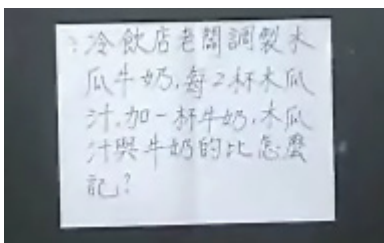 :冷飲店老闆調製木
瓜牛奶,每2杯木瓜
汁,加一杯牛奶,木瓜
汁與牛奶的比怎麼
記?